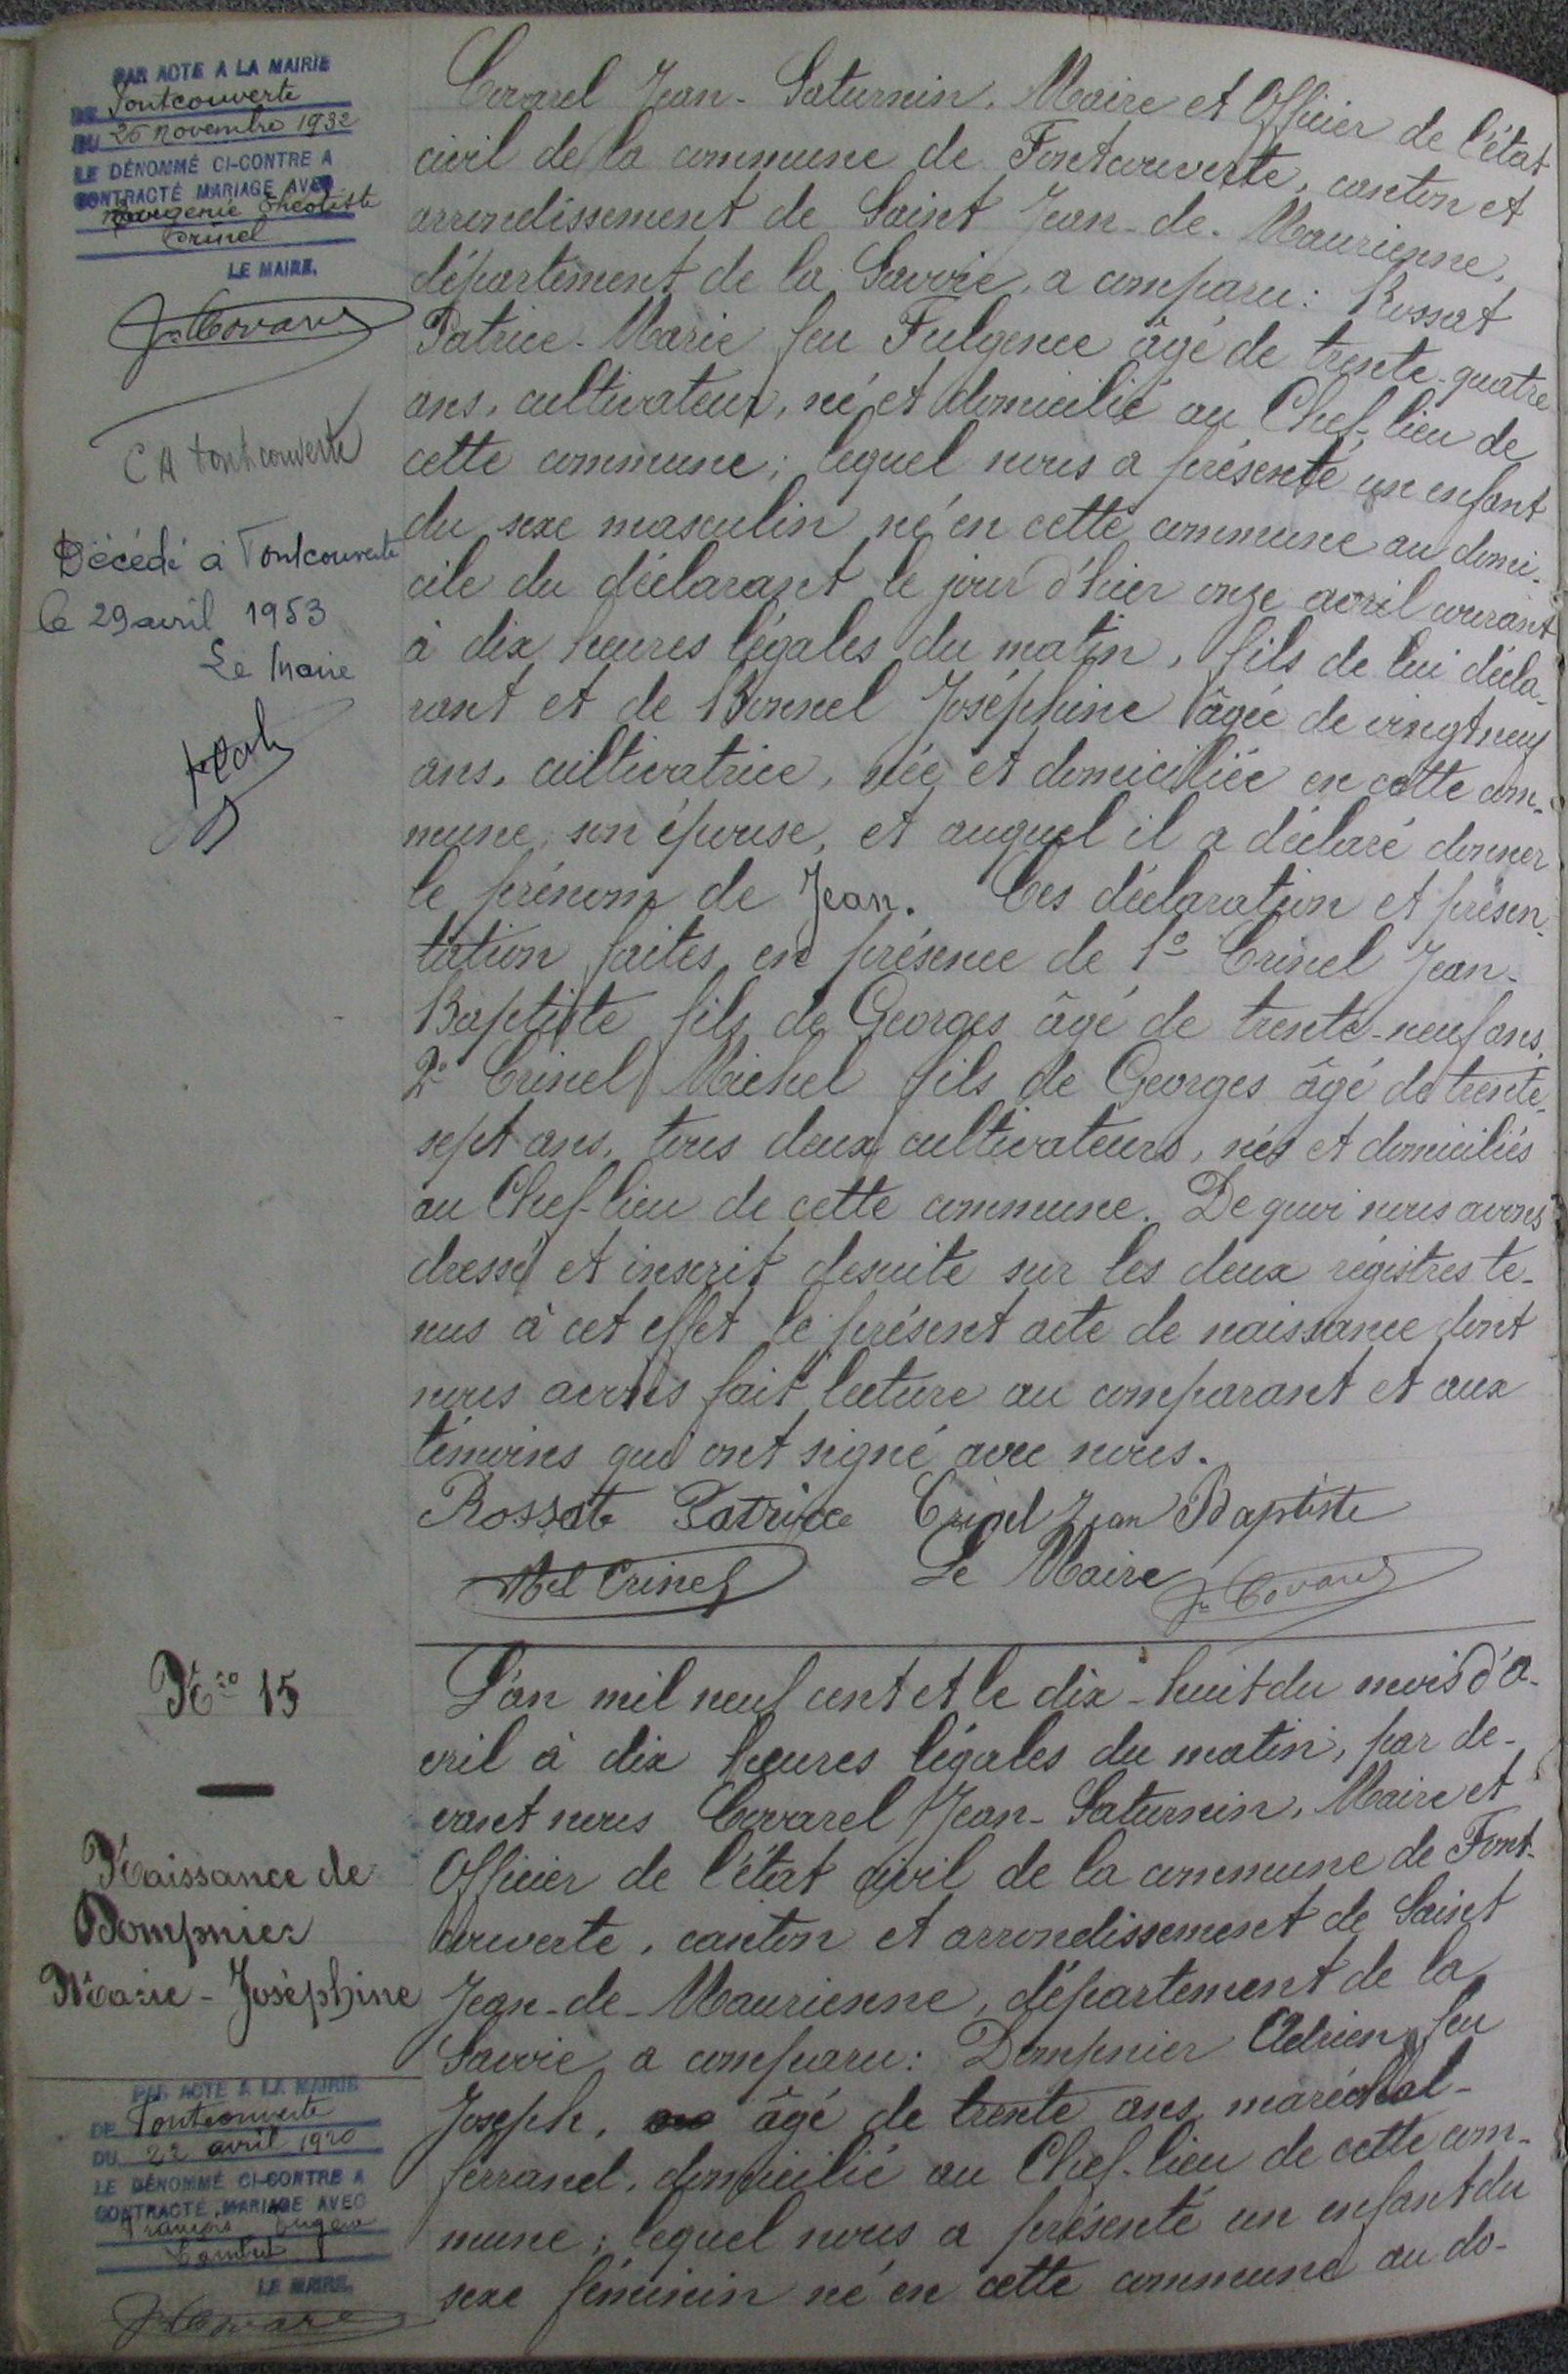 PAR ACTE A LA MAIRIE
DE Fontcouverte
DU 26 novembre 1932
LE DÉNOMMÉ CI-CONTRE A
CONTRACTÉ MARIAGE AVEC
Eugénie Théotiste
Crinel
LE MAIRE,
Jn Covarel
CA Fontcouverte
Décédé à Fontcouverte
le 29 avril 1953
Le Maire
Covarel Jean-Saturnin, Maire et Officier de l'état
civil de la commune de Fontcouverte, canton et
arrondissement de Saint Jean-de-Maurienne,
département de la Savoie, a comparu : Rossat
Patrice-Marie feu Fulgence âgé de trente-quatre
ans, cultivateur, né et domicilié au Chef-lieu de
cette commune; lequel nous a présenté un enfant
du sexe masculin né en cette commune au domi-
cile du déclarant le jour d'hier onze avril courant
à dix heures légales du matin, fils de lui décla-
rant et de Bonnel Joséphine âgée de vingt neuf
ans, cultivatrice, née et domiciliée en cette com-
mune, son épouse, et auquel il a déclaré donner
le prénom de Jean. Ces déclaration et présen-
tation faites en présence de 1° Crinel Jean-
Baptiste fils de Georges âgé de trente-neuf ans,
2° Crinel Michel fils de Georges âgé de trente-
sept ans, tous deux cultivateurs, nés et domiciliés
au Chef-lieu de cette commune. De quoi nous avons
dressé et inscrit desuite sur les deux régistres te-
nus à cet effet le présent acte de naissance dont
nous avons fait lecture au comparant et aux
témoins qui ont signé avec nous.
Rossat Patrice Crinel Jean Baptiste
Mel Crinel Le Maire Jn Covarel
N° 15
Naissance de
Dompnier
Marie-Joséphine
PAR ACTE A LA MAIRIE
DE Fontcouverte
DU 22 avril 1920
LE DÉNOMMÉ CI-CONTRE A
CONTRACTÉ MARIAGE AVEC
François Eugène
LE MAIRE,
Jn Covarel
L'an mil neuf cent et le dix-huit du mois d'a-
vril à dix heures légales du matin, par de-
vant nous Covarel Jean-Saturnin, Maire et
Officier de l'état civil de la commune de Font-
couverte, canton et arrondissement de Saint
Jean-de-Maurienne, département de la
Savoie, a comparu : Dompnier Adrien feu
Joseph, âgé de trente ans, maréchal-
ferrand, domicilié au Chef-lieu de cette com-
mune; lequel nous a présenté un enfant du
sexe féminin né en cette commune au do-